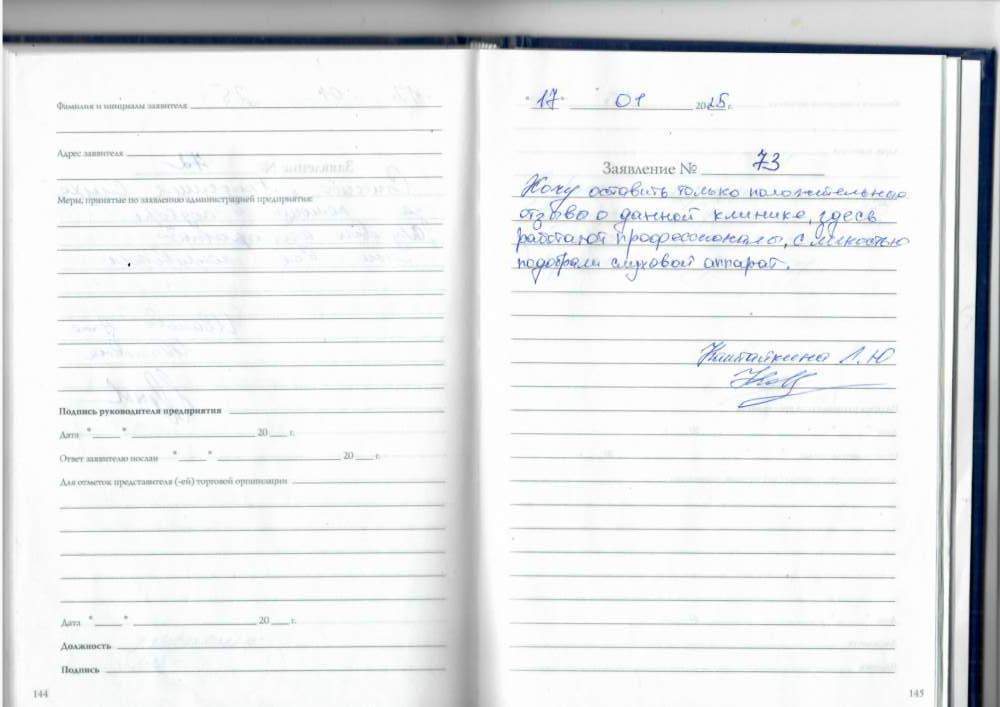 Фамилия и инициалы заявителя
Адрес заявителя
Меры, принятые по заявлению администрацией предприятия:
Подпись руководителя предприятия
Дата " " 20 г.
Ответ заявителю послан " " 20 г.
Для отметок представителя (-ей) торговой организации
Дата " " 20 г.
Должность
Подпись
144
"17" 01 2025 г.
Заявление № 73
Хочу оставить только положительной
отзыв о данной клинике, здесь
работают профессионалы, с легкостью
подобрали слуховой аппарат.
Л.Ю
145